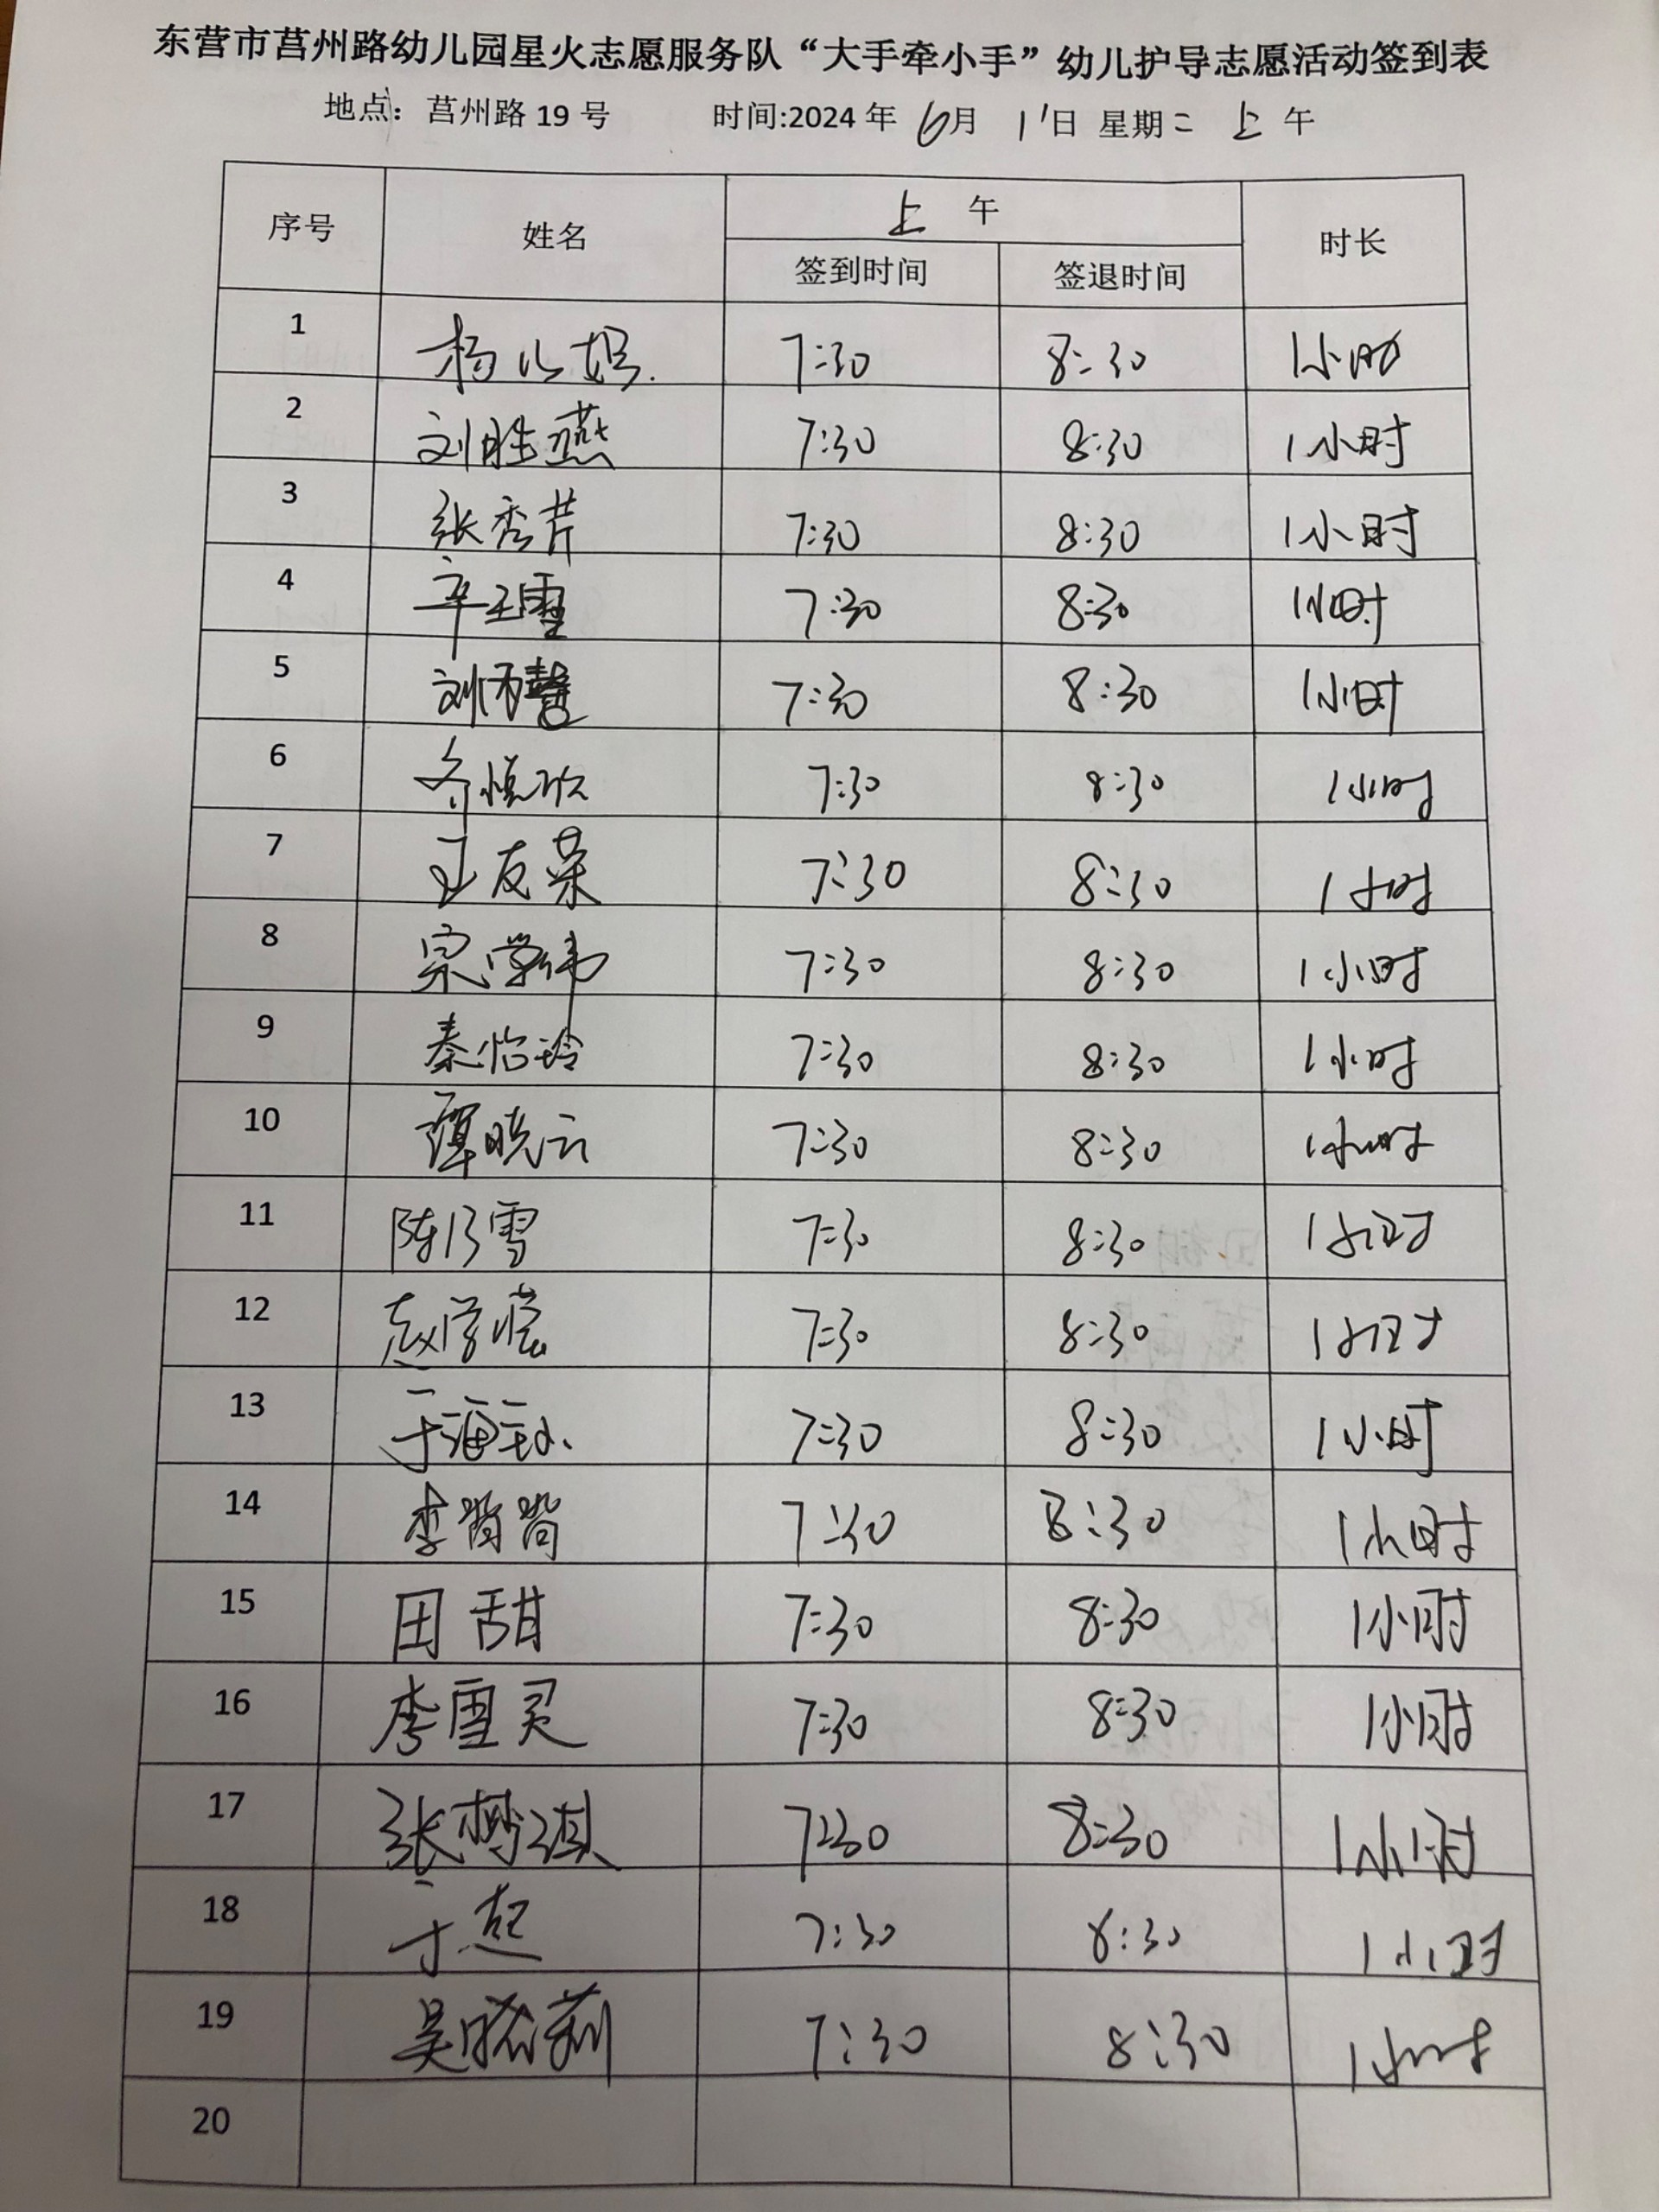 东营市莒州路幼儿园星火志愿服务队“大手牵小手”幼儿护导志愿活动签到表
地点：莒州路 19 号 时间:2024 年 6月 11日 星期二 上午
序号 姓名 上午 时长
签到时间 签退时间
1 杨 7:30 8:30 1小时
2 刘胜燕 7:30 8:30 1小时
3 张秀芹 7:30 8:30 1小时
4 辛玉雪 7:30 8:30 1小时
5 刘馨 7:30 8:30 1小时
6 齐悦欣 7:30 8:30 1小时
7 王友荣 7:30 8:30 1小时
8 宗学伟 7:30 8:30 1小时
9 秦怡玲 7:30 8:30 1小时
10 谭晓云 7:30 8:30 1小时
11 陈乃雪 7:30 8:30 1小时
12 赵学莹 7:30 8:30 1小时
13 于海 7:30 8:30 1小时
14 李 7:30 8:30 1小时
15 田甜 7:30 8:30 1小时
16 李雪灵 7:30 8:30 1小时
17 张梦琪 7:30 8:30 1小时
18 于 7:30 8:30 1小时
19 吴晓莉 7:30 8:30 1小时
20